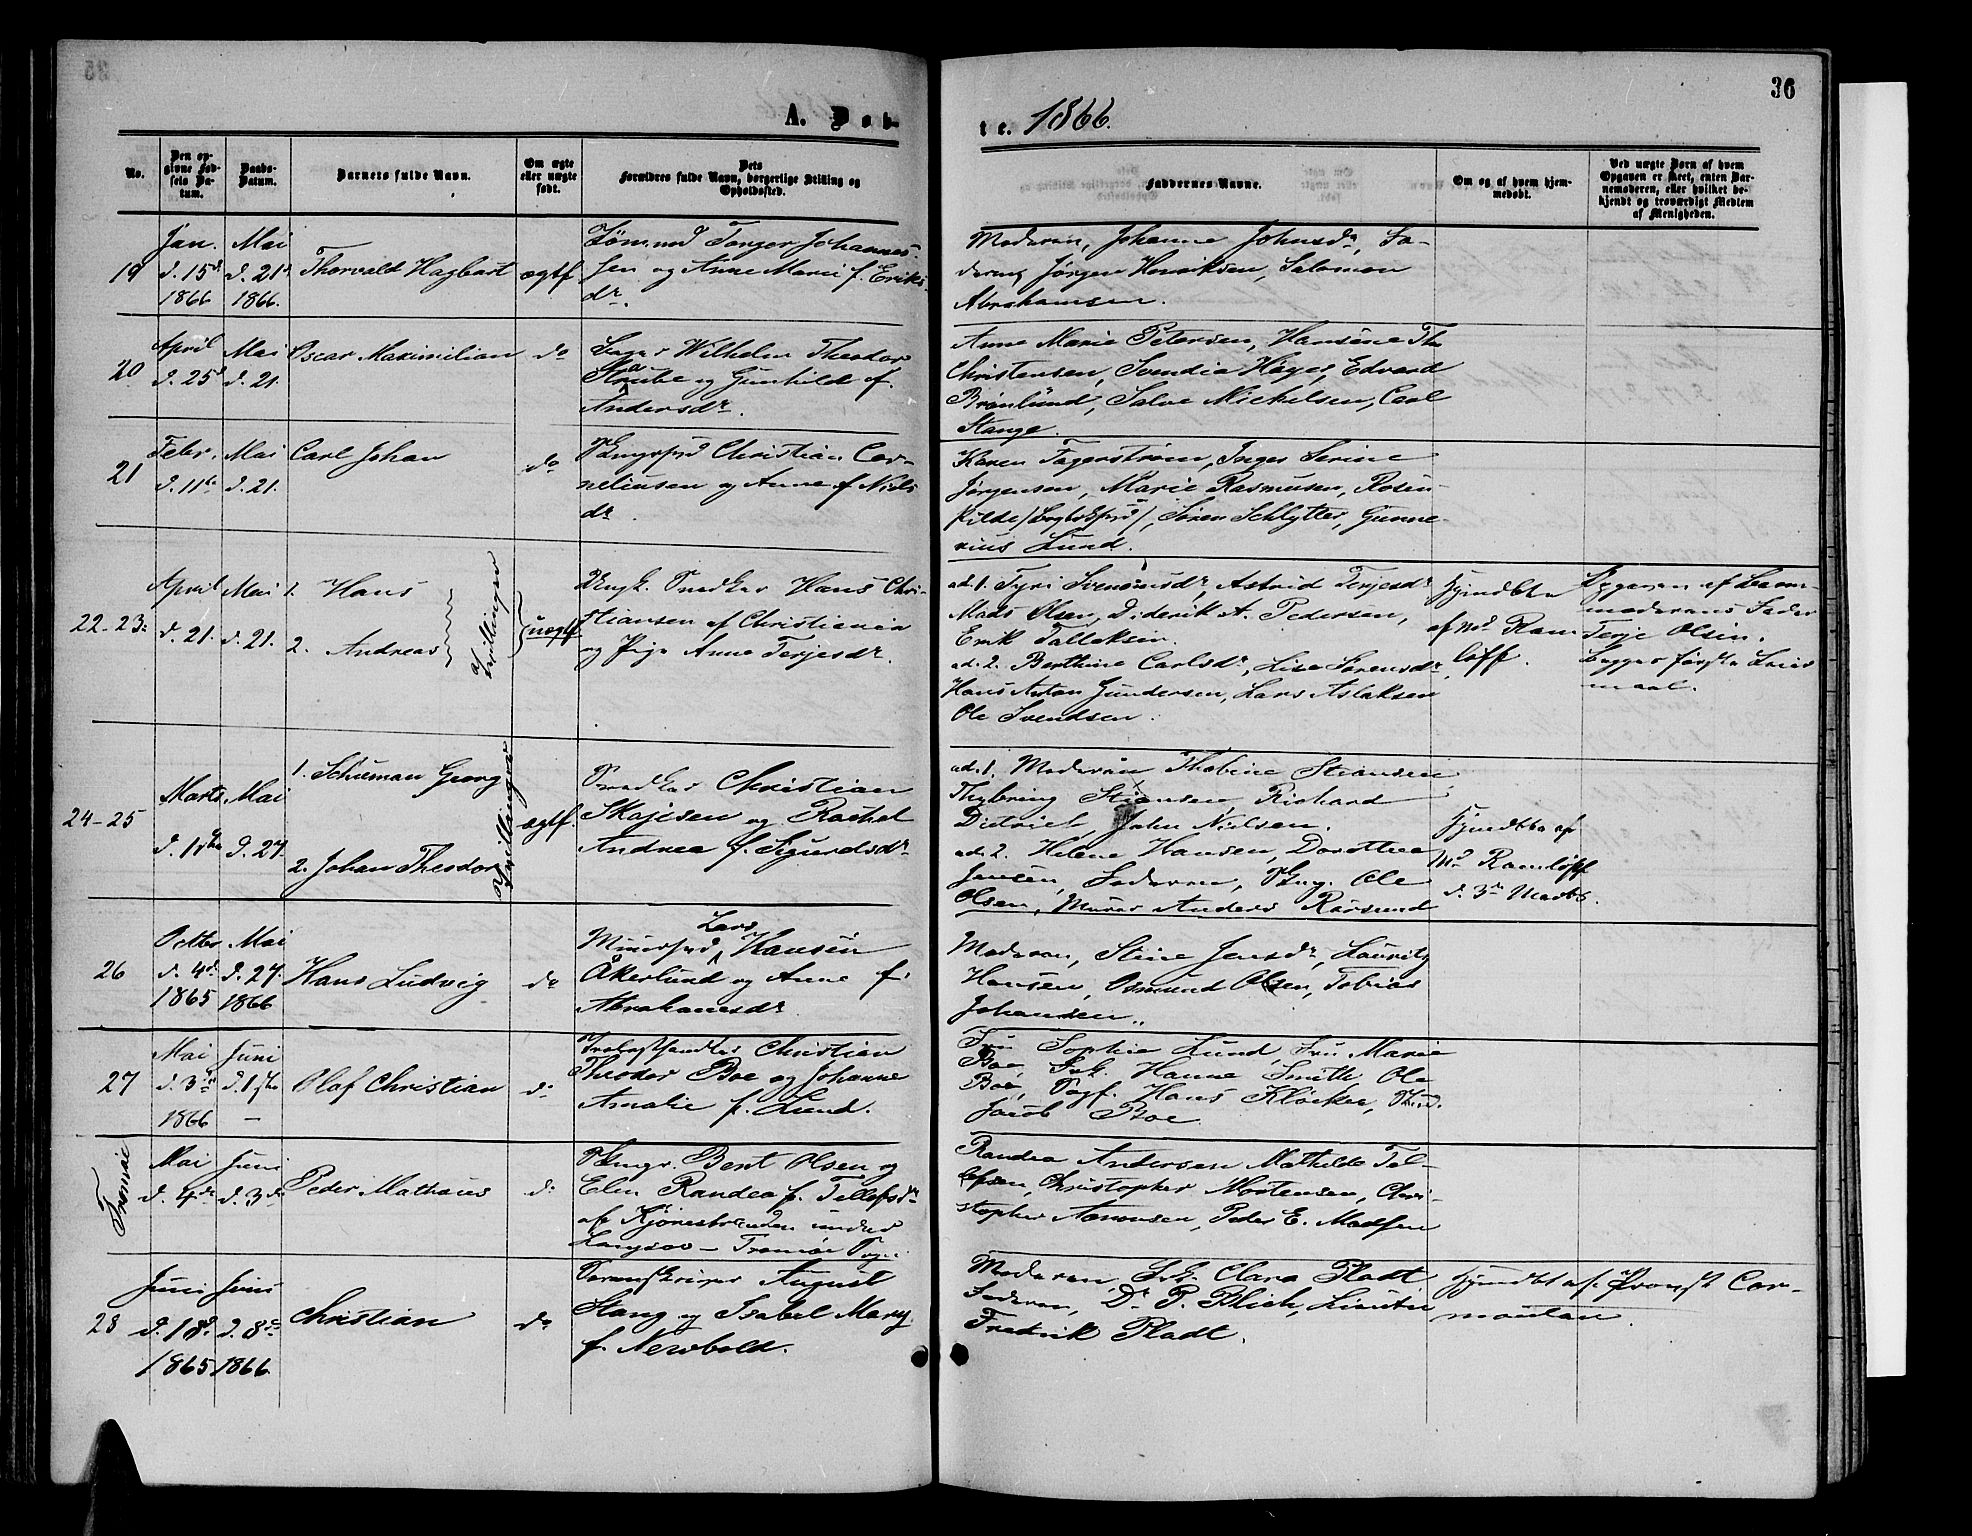 36
A. Døb-
te. 1866.
No.
Den op-
givne Fød-
sels Da-
tum.
Daabs-
Datum.
Barnets fulde Navn.
Om ægte
eller uægte
født.
Dets
Forældres fulde Navn, borgerlige Stilling og
Opholdssted.
Faddernes Navne.
Om og af hvem hjem-
medøbt.
Ved uægte Børn af hvem
Opgaven er skeet, enten Bar-
nemoderen, eller hvilket be-
kjendt og troværdigt Medlem
af Menigheden.
19
Jan.
d. 15de
1866
Mai
d. 21de
1866.
Thorvald Hagbart
ægtf
Tømmd Torger Johannes-
sen og Anne Marie f. Eriks-
dr.
Moderen, Johanne Johnsdr, Fa-
deren, Jørgen Henriksen, Salomon
Abrahamsen.
20
April
d. 25de
Mai
d. 21.
Oscar Maximilian
do
Wilhelm Theodor
og Gunhilde f.
Andersdr.
Anne Marie Petersen, Hansine Th
Christensen, Svendia Høyer, Edvard
Brønlund, Salve Michelsen, Carl
Stange.
21
Febr.
d. 11te
Mai
d. 21.
Carl Johan
do
Christian Cor-
neliusen og Anne f. Niels
dr.
Karen Fagerstrøm, Inger Serine
Jørgensen, Marie Rasmusen, Rosen-
kilde Søren Schlytter, Gunne-
rius Lund.
22-23
April
d. 21.
Mai
d. 21.
1. Hans
2. Andreas
Tvillinger
uægtf
Ungk. Snedker Hans Chri-
stiansen af Christiania
og Pige Anne Terjesdr.
ad. 1. Tyri Svenumsdr, Astrid Terjesdr
Mads Olsen, Diderik A. Pedersen,
Erik Tallaksen.
ad. 2. Berthine Carlsdr, Lise Sørensdr
Hans Anton Gundersen, Lars Aslaksen
Ole Svendsen.
Hjemdbt
af Md Ram
løff.
Opgaven af Barne-
moderens Fader
Terje Olsen.
Begges første Leier-
maal.
24-25
Marts
d. 1ste
Mai
d. 27.
1. Schuman Georg
2. Johan Theodor
Tvillinger
ægtf.
Snedker Christian
Skajesen og Rachel
Andrea f. Sigurdsdr
ad. 1. Moderen, Thobine Stiansen,
Thybring Stiansen, Richard
Dietrich, John Nielsen.
ad. 2. Helene Hansen, Dorothea
Jensen, Faderen, Ole
Olsen, Murer Anders Rørsund
Hjemdbt af
Md Ramløff
d. 3de Marts.
26
Octbr
d. 4de
1865
Mai
d. 27.
1866
Hans Ludvig
do
Lars Hansen
Åkerlund og Anne f.
Abrahamsdr.
Moderen, Stine Jensdr, Lauritz
Hansen, Osmund Olsen, Tobias
Johansen.
27
Mai
d. 3de
1866
Juni
d. 1ste
—
Olaf Christian
do
Christian
Theodor Boe og Johanne
Amalie f. Lund.
Fru Sophie Lund, Fru Marie
Boe, Frk. Hanne Smith, Ole
Boe, Hans Kløcker,
Jacob Boe
Tromøi
Mai
d. 4de
Juni
d. 3de
Peder Mathæus
do
Bent Olsen og
Elen Randea f. Tellefsdr
af Kjønesbrenden under
Langsæv - Tromøe Sogn.
Randea Andersen, Mathilde Tel-
lefsen, Christopher Mortensen, Chri-
stopher Aanonsen, Peder E. Madsen
28
Juni
d. 18de
1865
Juni
d. 8de
1866
Christian
do
Sorenskriver August
Stang og Isabel Mary
f. Newbold.
Moderen, Frk. Clara Pladt
Faderen, Dr. P. Blich, Lieutn
Fredrik Pladt.
Hjemdbt af Provst Cor-
montan.